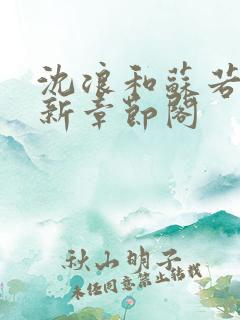 沈浪和蘇若
新章節閣
秋山明子
未经同意禁止转载